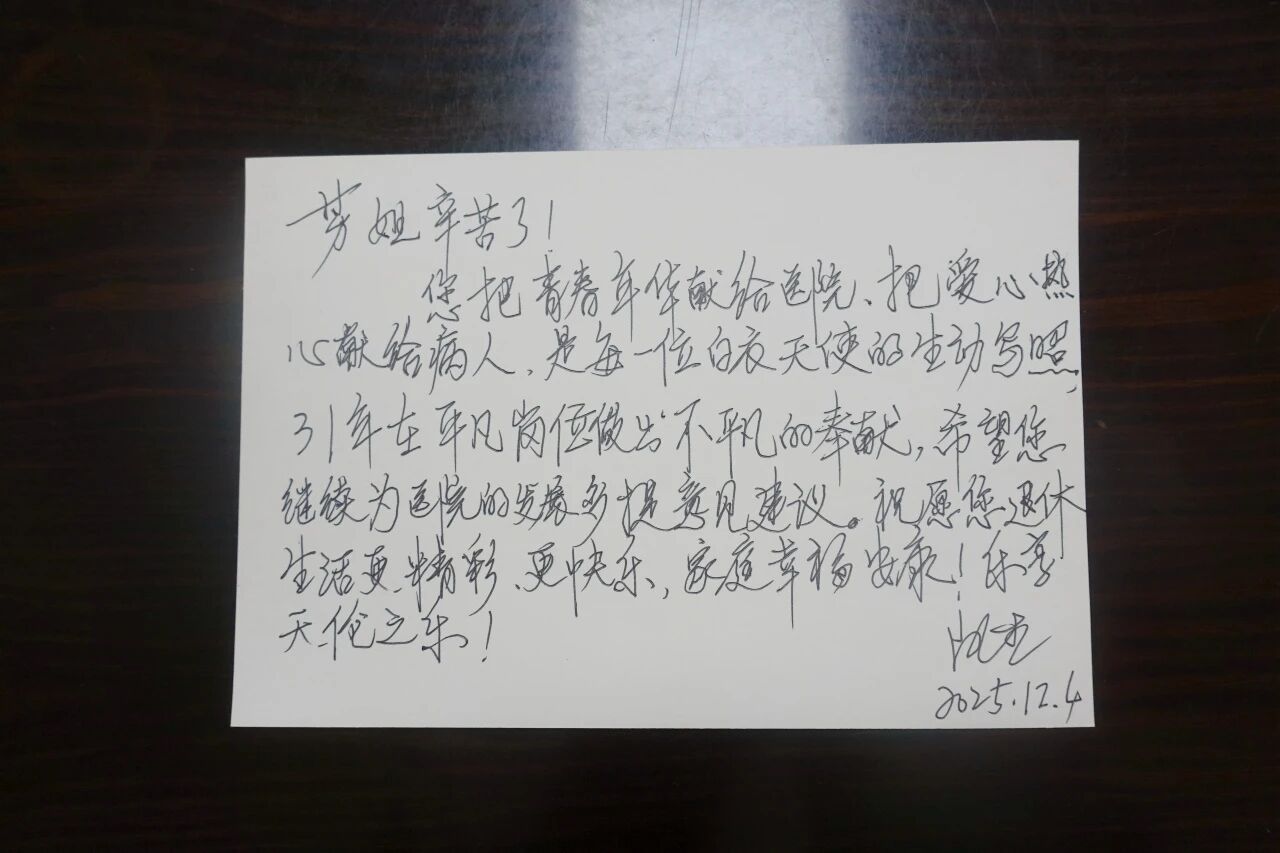 姐辛苦了!
您把青春年华献给医院、把爱心热
心献给病人、是每一位白衣天使的生动写照,
31年在平凡岗位做出不平凡的奉献,希望您
继续为医院的发展多提意见建议。祝愿您退休
生活更精彩、更快乐,家庭幸福安康!乐享
天伦之乐!
2025.12.4